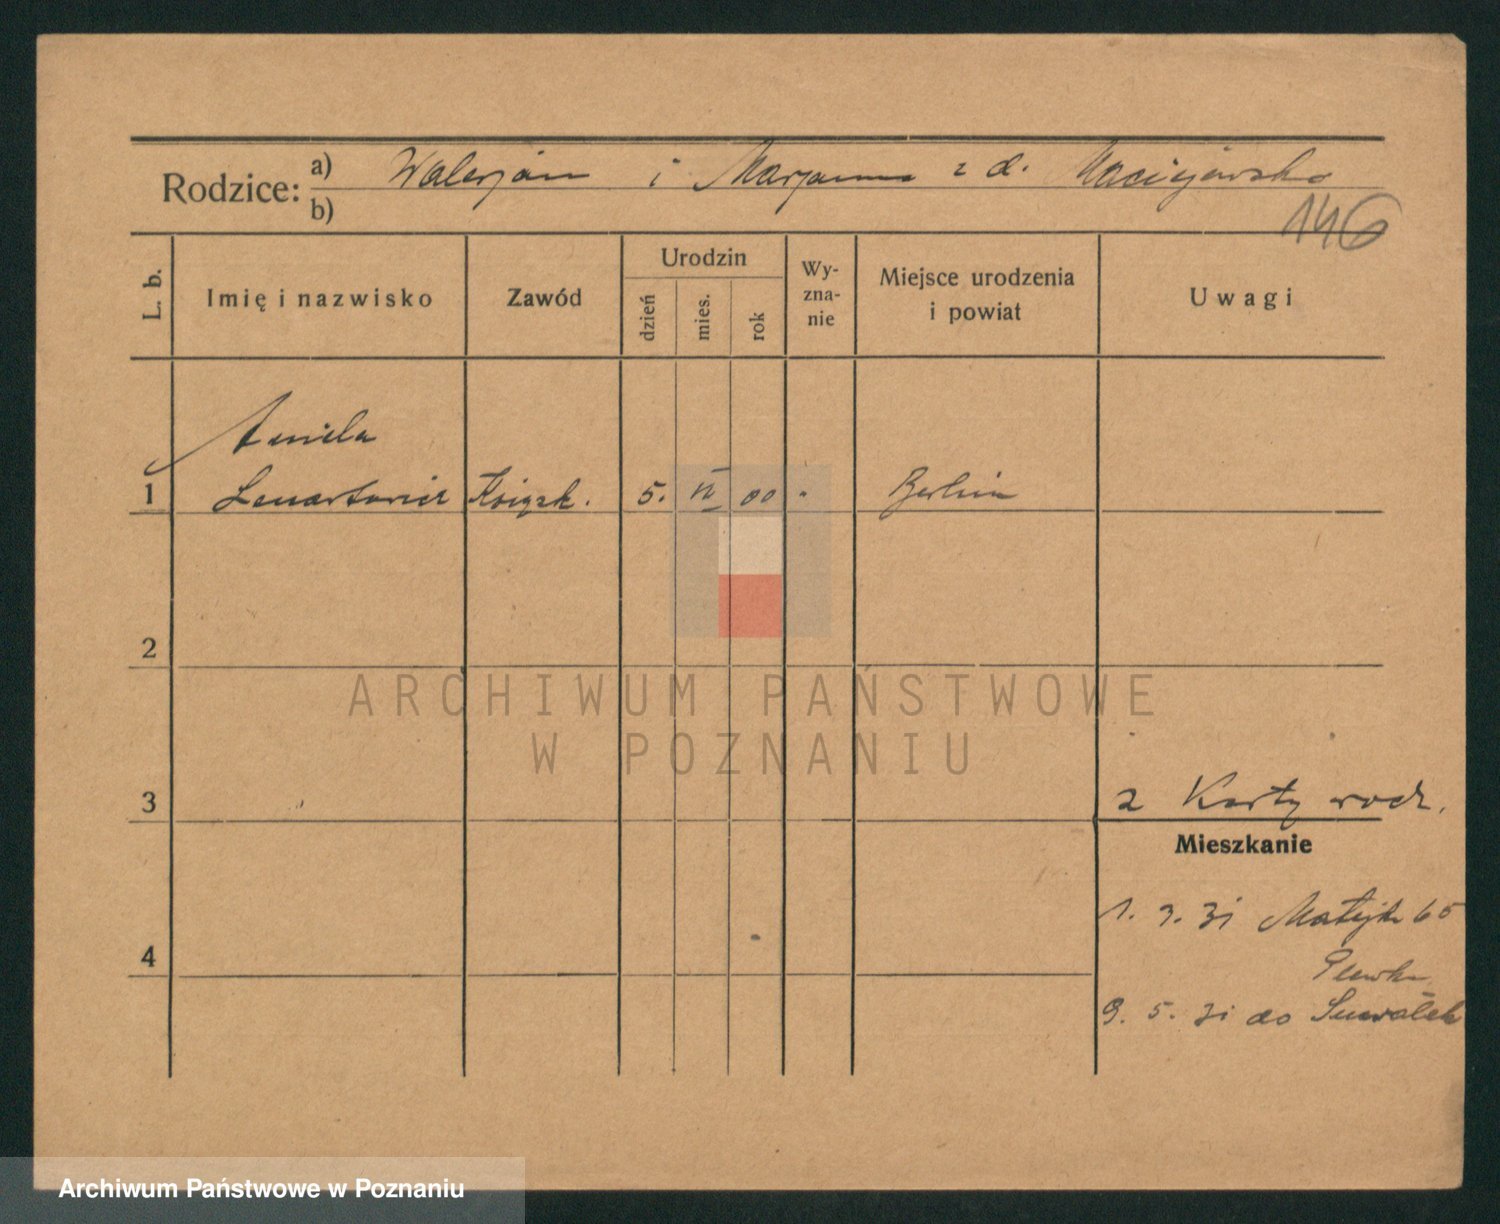 Rodzice: a) Walerjan i Marjanna z d. Maciejewska
b)
146
L. b.
Imię i nazwisko
Zawód
Urodzin
dzień
mies.
rok
Wy-
zna-
nie
Miejsce urodzenia
i powiat
Uwagi
Aniela
1 Lenartowicz Książk. 5. VI 00 " Berlin
2
ARCHIWUM PAŃSTWOWE
W POZNANIU
3 z Karty rodz.
Mieszkanie
1. 3. 31 Matejk 65
4
9. 5. 31 do Suwałek
Archiwum Państwowe w Poznaniu